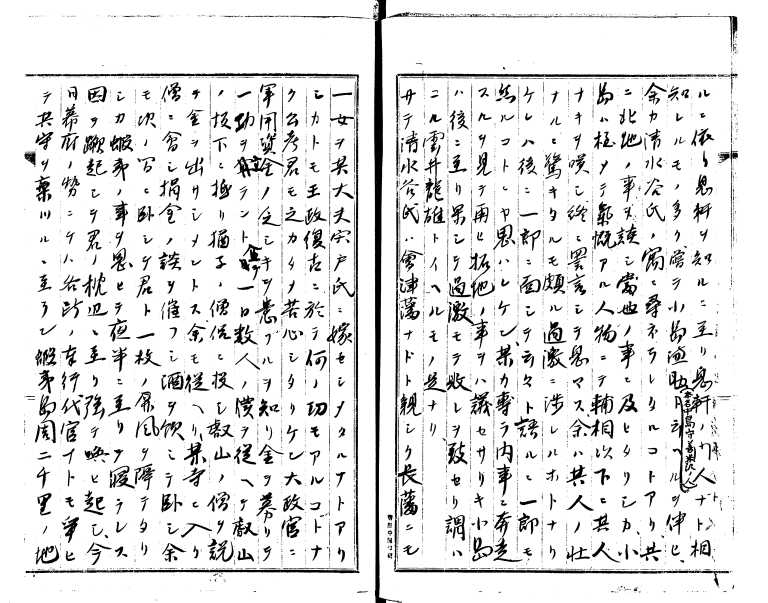 ルニ依リ息軒ヲ知ルニ至リ息軒ノ門人ナト相
知レルモノ多ク嘗テ小島 ト云ヘルヲ伴ヒ
余カ清水谷氏ノ寓ニ尋ネラレタルコトアリ其
ニ北地ノ事ヲ談シ當世ノ事ニ及ヒタリシカ小
島ハ極タテ氣慨アル人物ニテ輔相以下ニ其人
ナキヲ嘆シ終ニ罵言シテ息マス余ハ其人ノ壮
ナルニ驚キタルモ頗ル過激ニ渉レルホトナリ
ケレハ後ニ一郎ニ面シテ云々ト語ルニ一郎モ
然ルコトニヤ思ハレケン某カ専ラ内事ニ奔走
スルヲ見テ再ヒ拓地ノ事ヲハ議セサリキ小島
ハ後ニ至リ果シテ過激モテ敗レヲ致セリ謂ハ
ユル雲井龍雄トイヘルモノ是ナリ
サテ清水谷氏ハ會津藩ナドト親シク長藩ニモ
一女ヲ其大夫宍戸氏ニ嫁セシメタルナトアリ
シカトモ王政復古ニ於テ何ノ功モアルコトナ
ク公考君モ之カタメ苦心シタリケン大政官ニ
軍用資金ノ乏シキヲ患フルヲ知リ金ヲ募リテ
一助ヲ ラント 一日数人ノ僕ヲ従ヘテ叡山
ノ坂下ニ趣リ猶子ノ僧侶ニ投シ叡山ノ僧ヲ説
キ金ヲ出サシメントス余モ從ヘリ某寺ニ入リ
僧ニ會シ損金ノ談ヲ催フシ酒ヲ飲ミテ臥シ余
モ次ノ間ニ臥シテ君ト一枚ノ屏風ヲ障テタリ
シカ蝦夷ノ事ヲ思ヒテ夜半ニ至リテ寝ラレス
因テ蹶起シテ君ノ枕辺ニ至リ強テ喚ヒ起シ今
日幕府ノ勢ニテハ各所ノ奉行代官ナトモ争ヒ
テ其守ヲ棄ツルニ至ラン蝦夷島周二千里ノ地